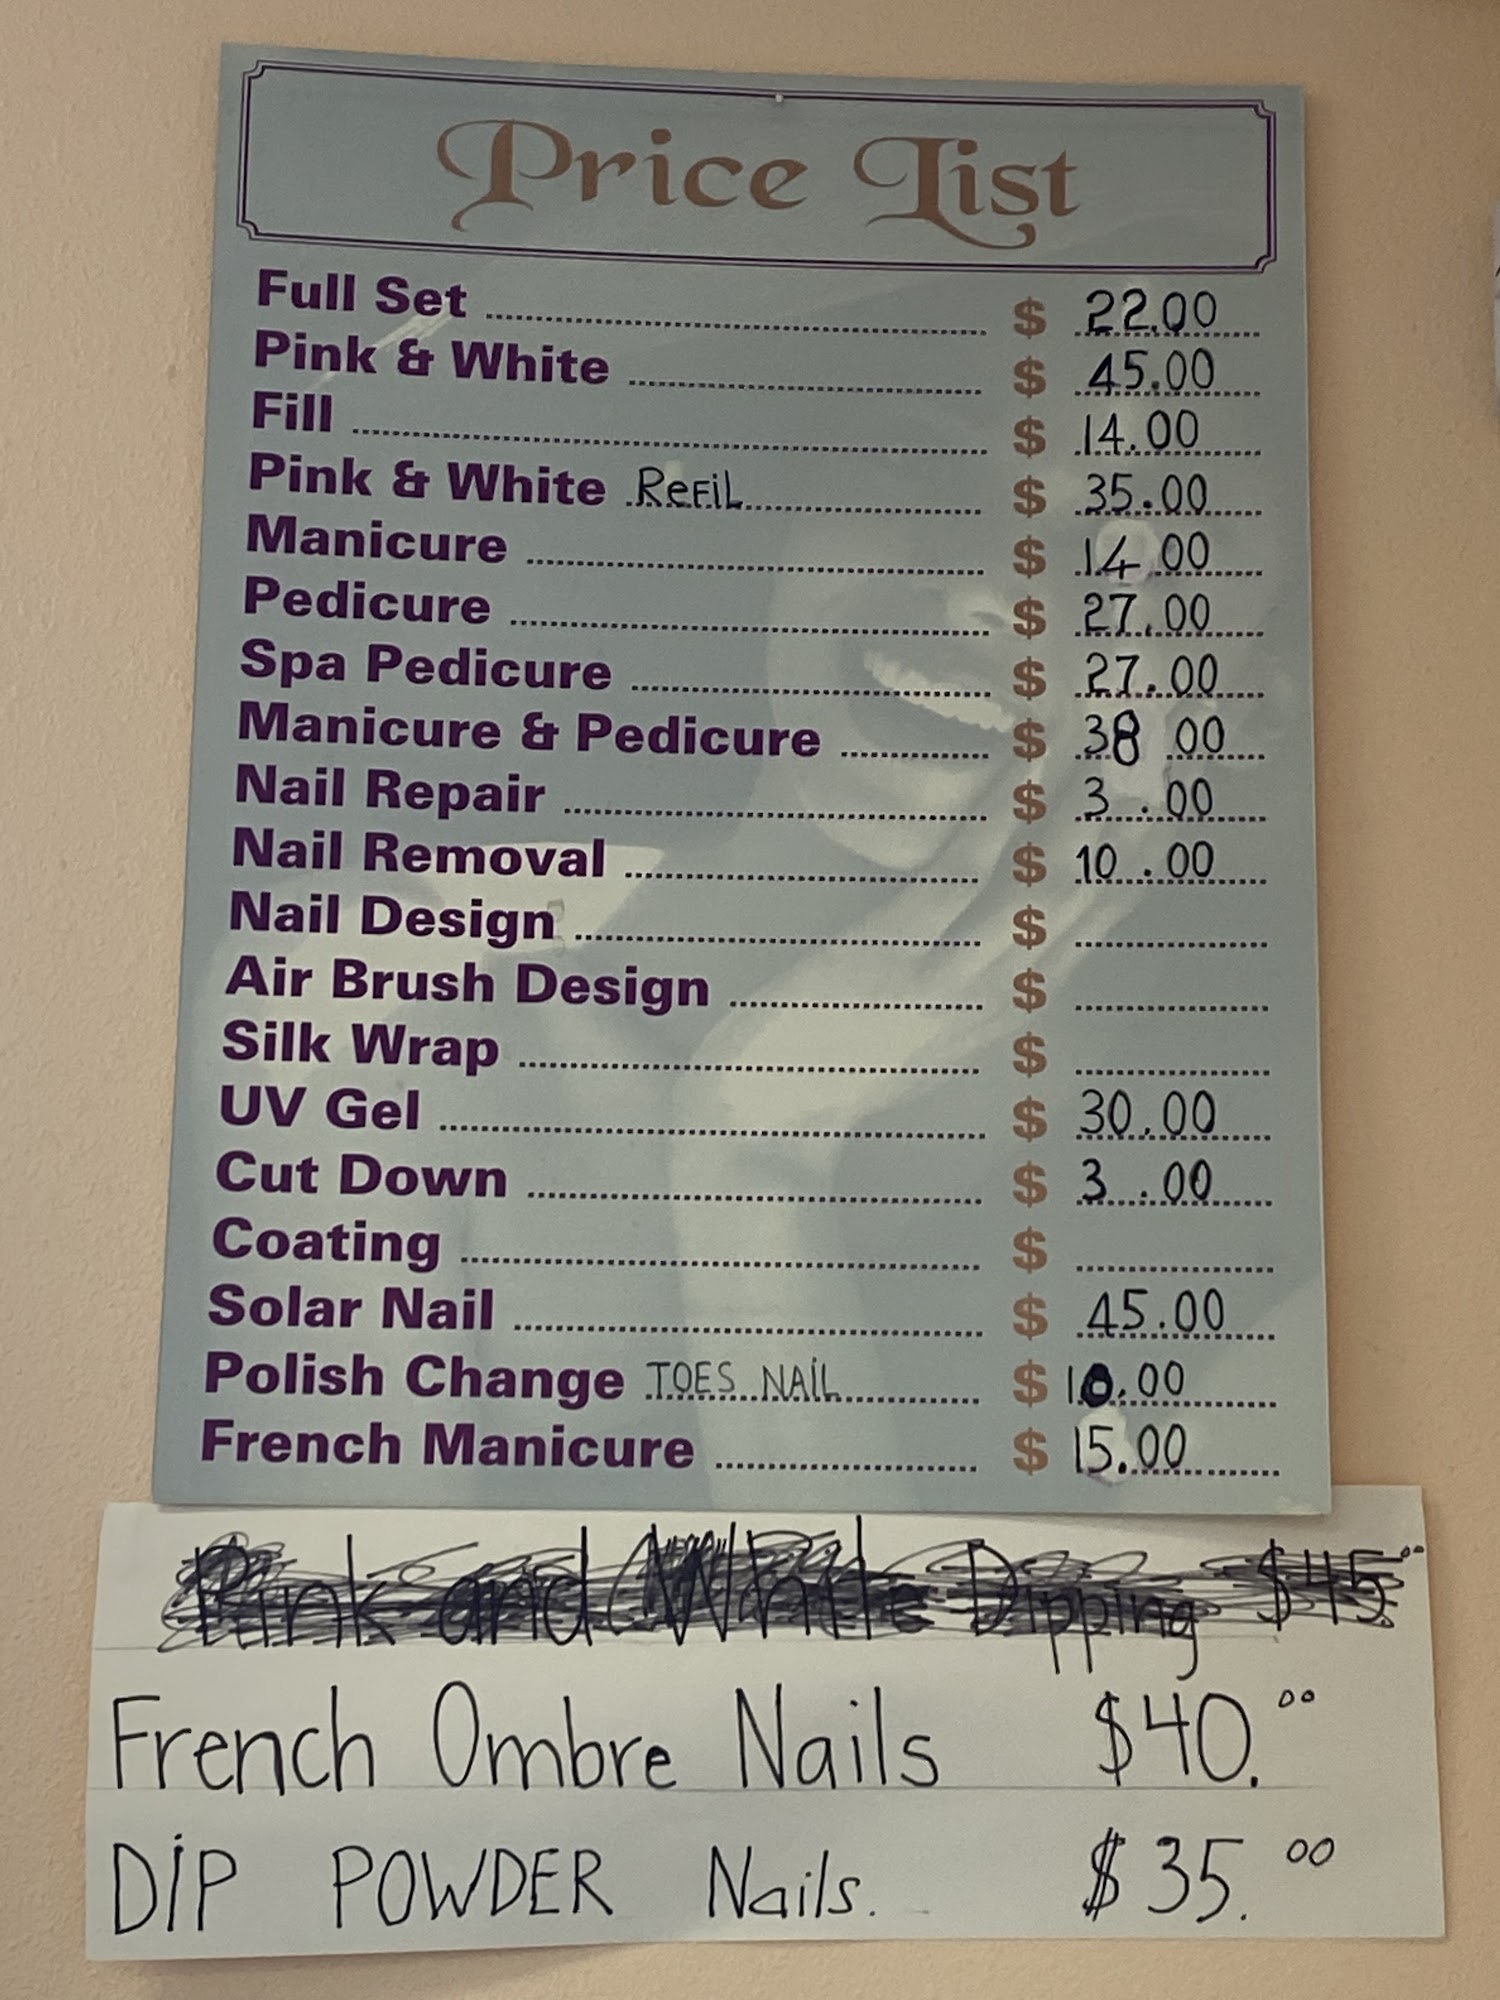 Price List
Full Set $ 22.00
Pink & White $ 45.00
Fill $ 14.00
Pink & White Refil $ 35.00
Manicure $ 14.00
Pedicure $ 27.00
Spa Pedicure $ 27.00
Manicure & Pedicure $ 38 00
Nail Repair $ 3 .00
Nail Removal $ 10 .00
Nail Design $
Air Brush Design $
Silk Wrap $
UV Gel $ 30.00
Cut Down $ 3 .00
Coating $
Solar Nail $ 45.00
Polish Change TOES NAIL $ 10.00
French Manicure $ 15.00
Pink and White Dipping $45.00
French Ombre Nails $40.00
DIP POWDER Nails. $35.00